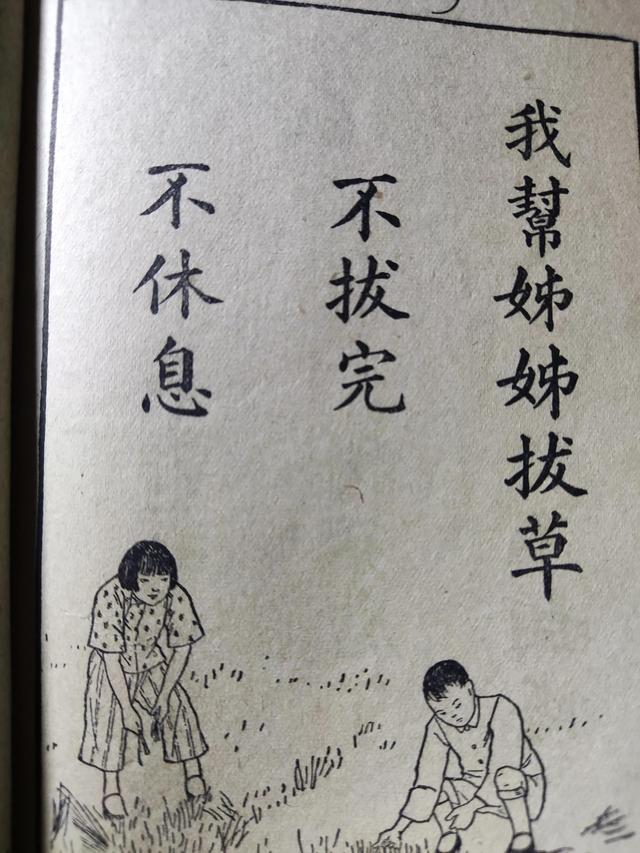 我幫姊姊拔草
不拔完
不休息